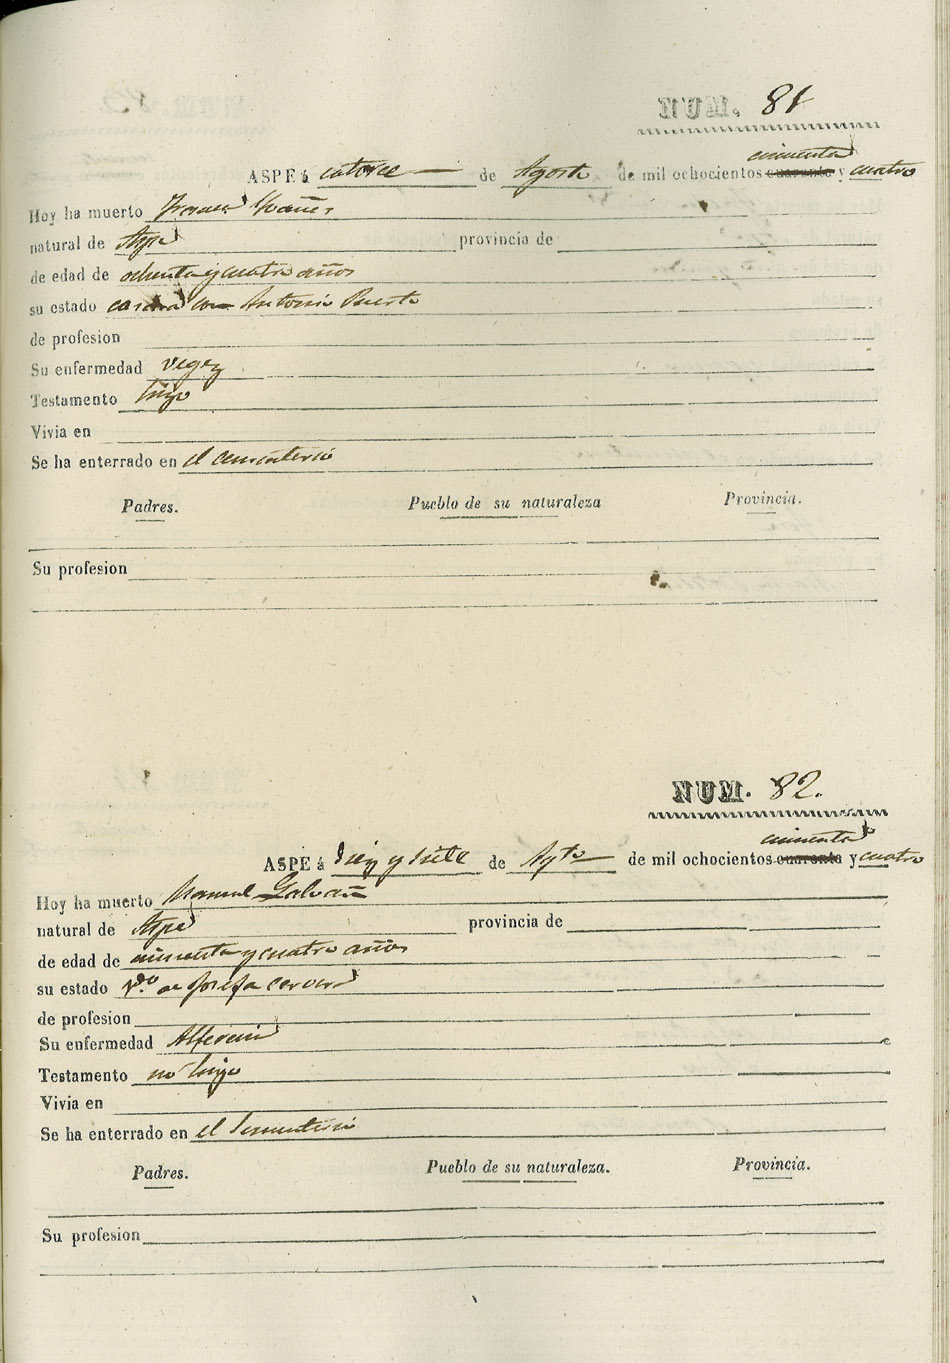 NUM. 81
ASPE á catorce de Agosto de mil ochocientos cuarenta cincuenta y cuatro
Hoy ha muerto Ybañes
natural de Aspe provincia de
de edad de ochenta y cuatro años
su estado casada con Antonio Puerto
de profesion
Su enfermedad vegez
Testamento hizo
Vivia en
Se ha enterrado en el cementerio
Padres. Pueblo de su naturaleza Provincia.
Su profesion
NUM. 82.
ASPE á diez y siete de Agto de mil ochocientos cuarenta cincuenta y cuatro
Hoy ha muerto Manuel Galvañ
natural de Aspe provincia de
de edad de cincuenta y cuatro años
su estado Vdo de Josefa Cervera
de profesion
Su enfermedad Alferecia
Testamento no hizo
Vivia en
Se ha enterrado en el Sementerio
Padres. Pueblo de su naturaleza. Provincia.
Su profesion